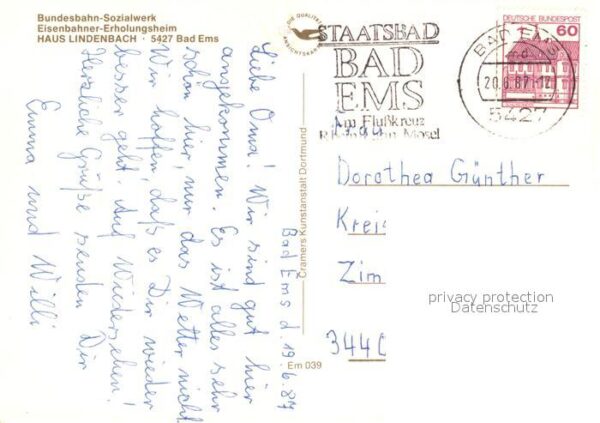 Bundesbahn-Sozialwerk
Eisenbahner-Erholungsheim
HAUS LINDENBACH · 5427 Bad Ems
Bad Ems d. 19.6.87
Liebe Oma! Wir sind gut hier
angekommen. Es ist alles sehr
schön hier, nur das Wetter nicht
Wir hoffen, daß es Dir wieder
besser geht. Auf Wiedersehen!
Herzliche Grüße senden Dir
Emma und Willi
Cramers Kunstanstalt Dortmund
Em 039
DIE QUALITÄTS
ANSICHTSKARTE
STAATSBAD
BAD
EMS
Am Flußkreuz
Rhein Lahn Mosel
BAD EMS
md
20.6.87-12
5427
DEUTSCHE BUNDESPOST
60
Dorothea Günther
Kreis
Zim
3440
privacy protection
Datenschutz